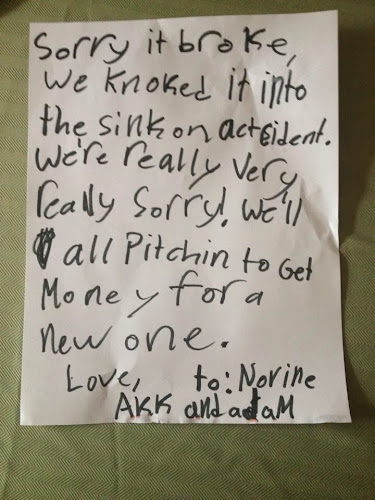 Sorry it broke,
we knoked it into
the sink on actsident.
We're really very
really sorry! We'll
all Pitchin to Get
Money for a
new one.
Love, to: Norine
AKK and adaM